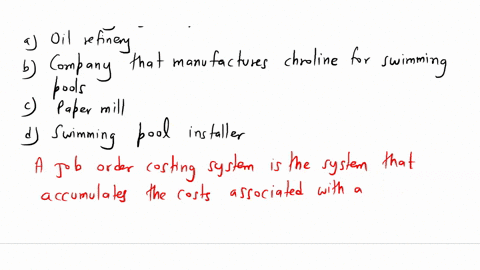 a) Oil refinery
b) Company that manufactures chroline for swimming
pools
c) Paper mill
d) Swimming pool installer
A job order costing system is the system that
accumulates the costs associated with a